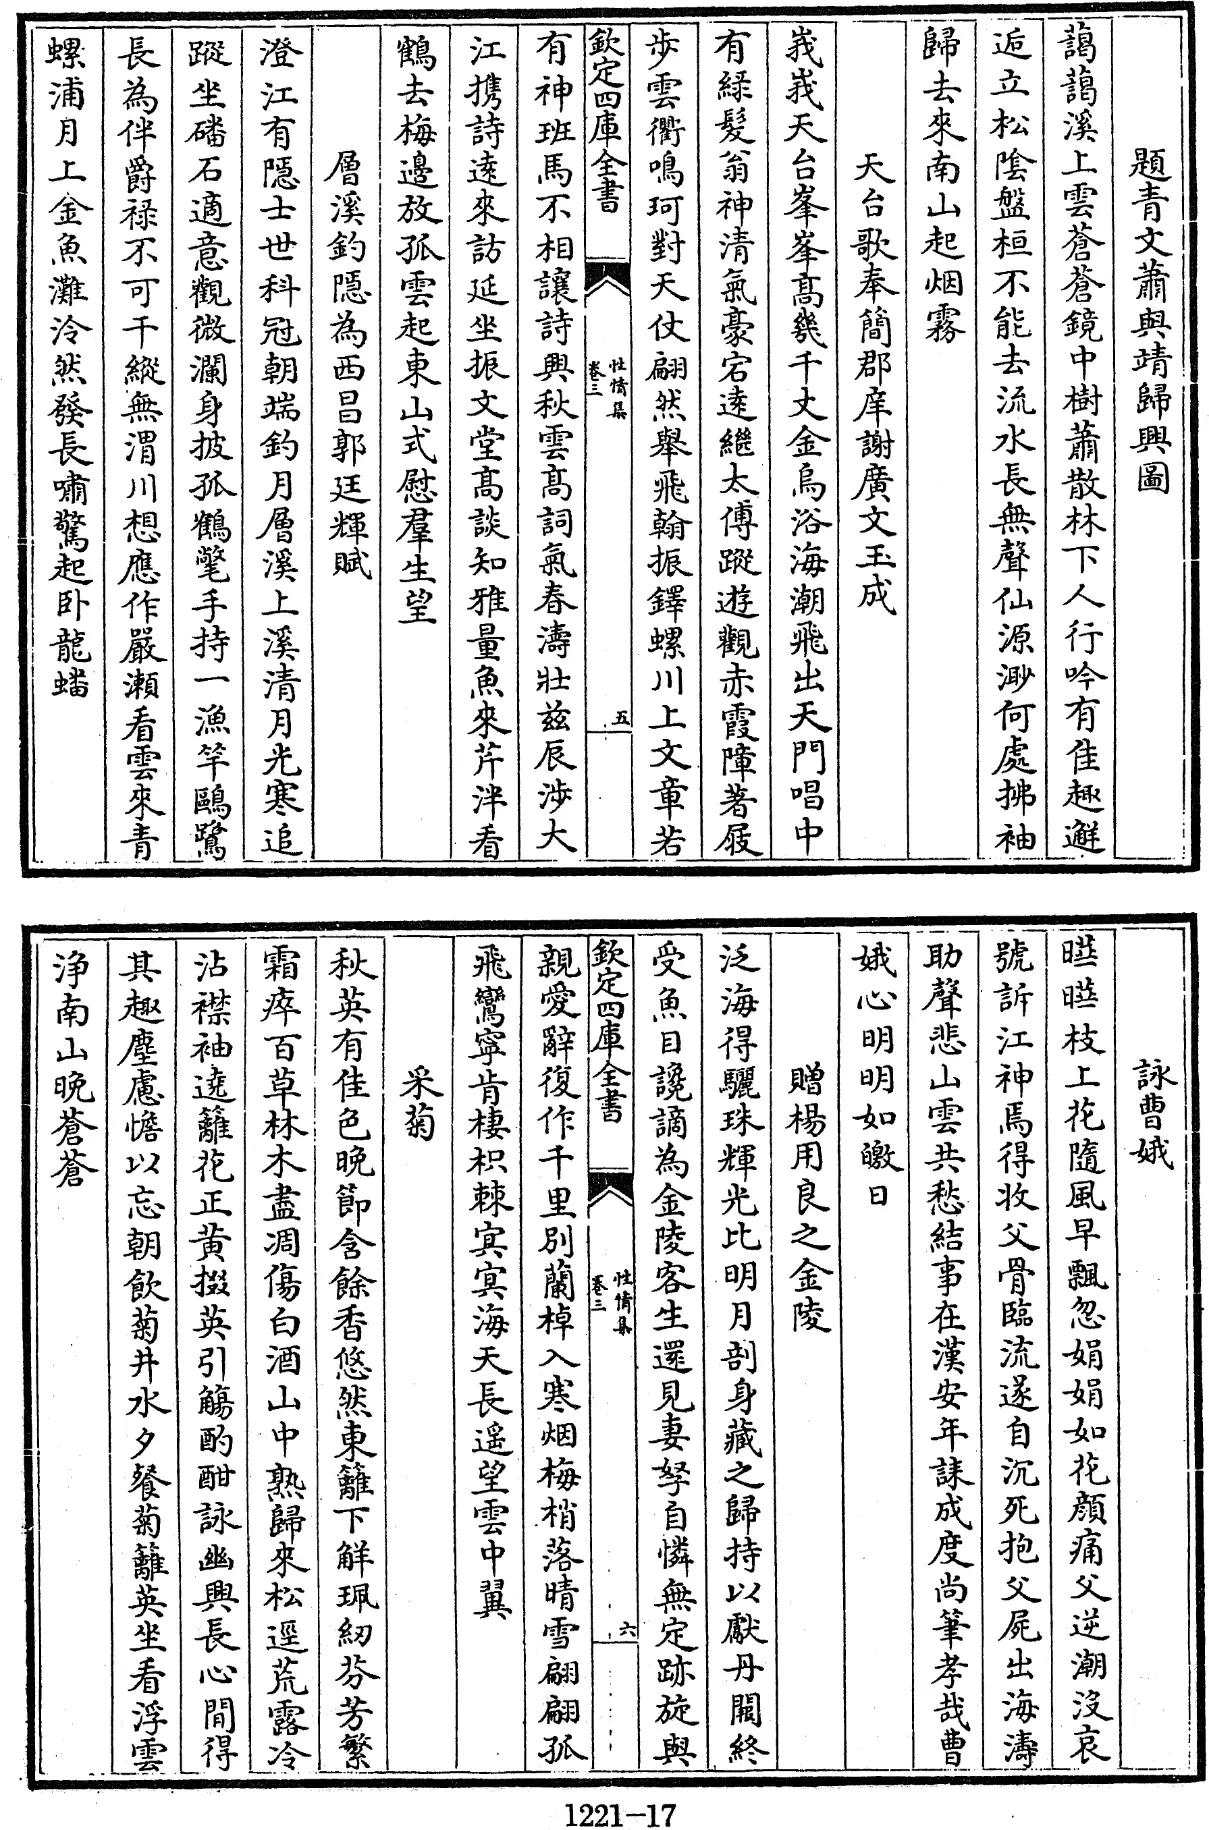 題青文蕭與靖歸興圖
藹藹溪上雲蒼蒼鏡中樹蕭散林下人行吟有佳趣邂
逅立松陰盤桓不能去流水長無聲仙源渺何處拂袖
歸去來南山起烟霧
天台歌奉簡郡庠謝廣文玉成
峩峩天台峯峯髙幾千丈金烏浴海潮飛出天門唱中
有綠髮翁神清氣豪宕逺繼太傅蹤遊觀赤霞障著屐
步雲衢鳴珂對天仗翩然舉飛翰振鐸螺川上文章若
欽定四庫全書
性情集
卷三
五
有神班馬不相讓詩興秋雲髙詞氣春濤壯兹辰涉大
江攜詩逺來訪延坐振文堂髙談知雅量魚來芹泮看
鶴去梅邊放孤雲起東山式慰羣生望
層溪釣隱為西昌郭廷輝賦
澄江有隱士世科冠朝端釣月層溪上溪清月光寒追
蹤坐磻石適意觀微瀾身披孤鶴氅手持一漁竿鷗鷺
長為伴爵祿不可干縱無渭川想應作嚴瀨看雲來青
螺浦月上金魚灘泠然發長嘯驚起卧龍蟠
詠曹娥
曀曀枝上花隨風早飄忽娟娟如花顔痛父逆潮沒哀
號訴江神焉得收父骨臨流遂自沉死抱父屍出海濤
助聲悲山雲共愁結事在漢安年誄成度尚筆孝哉曹
娥心明明如皦日
贈楊用良之金陵
泛海得驪珠輝光比明月剖身藏之歸持以獻丹闕終
受魚目讒謫為金陵客生還見妻孥自憐無定跡旋與
欽定四庫全書
性情集
卷三
六
親愛辭復作千里別蘭棹入寒烟梅梢落晴雪翩翩孤
飛鸞寧肯棲枳棘冥冥海天長遥望雲中翼
采菊
秋英有佳色晚節含餘香悠然東籬下解珮紉芬芳繁
霜瘁百草林木盡凋傷白酒山中熟歸來松逕荒露冷
沾襟袖遶籬花正黃掇英引觴酌酣詠幽興長心閒得
其趣塵慮憺以忘朝飲菊井水夕餐菊籬英坐看浮雲
浄南山晚蒼蒼
1221-17